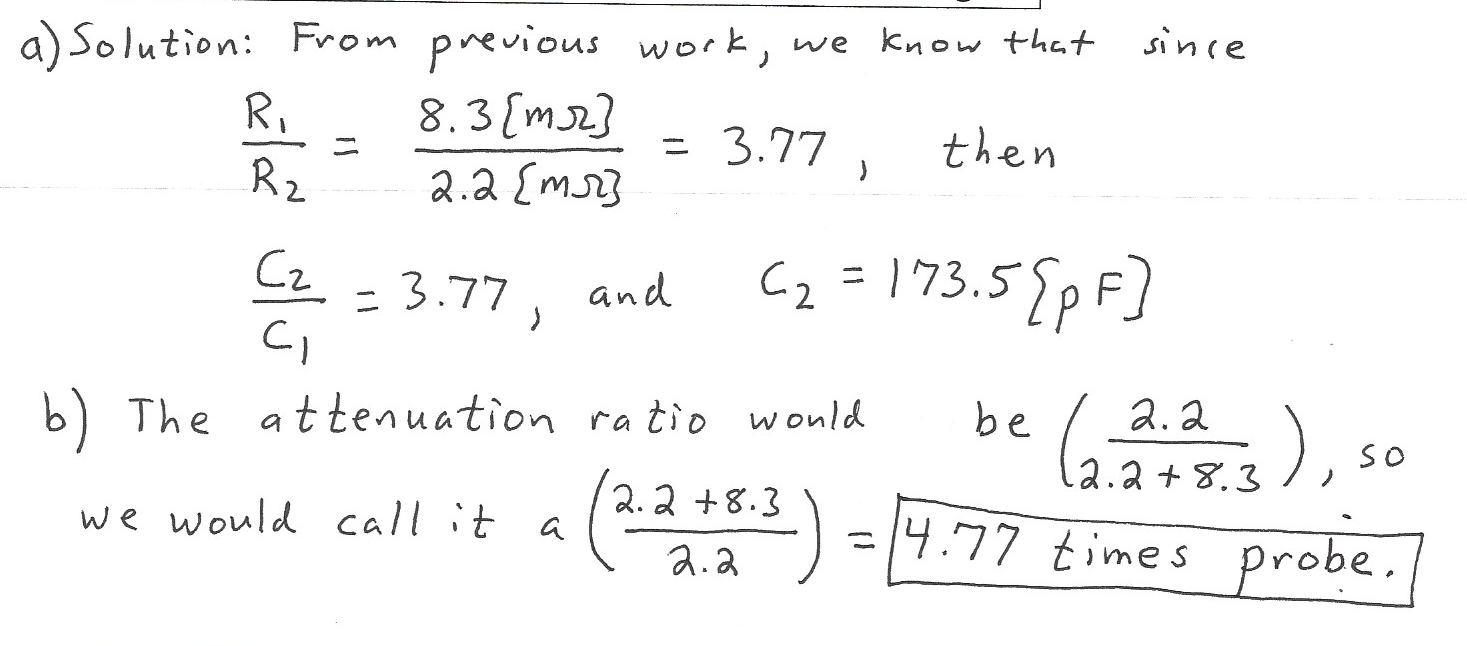 a) Solution: From previous work, we know that since
R₁/R₂ = 8.3[mΩ]/2.2[mΩ] = 3.77, then
C₂/C₁ = 3.77, and C₂ = 173.5[pF]
b) The attenuation ratio would be (2.2/(2.2+8.3)), so
we would call it a ((2.2+8.3)/2.2) = 4.77 times probe.